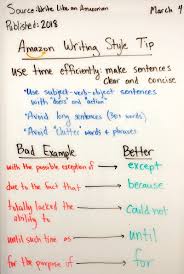 Source: Write Like an Amazonian
March 4
Published: 2018
Amazon Writing Style Tip
Use time efficiently: make sentences
clear and concise
* Use subject-verb-object sentences
with "doers" and "action"
* Avoid long sentences (30+ words)
* Avoid "clutter" words & phrases
Bad Example
Better
with the possible exception of
except
due to the fact that
because
totally lacked the
ability to
could not
until such time as
until
for the purpose of
for